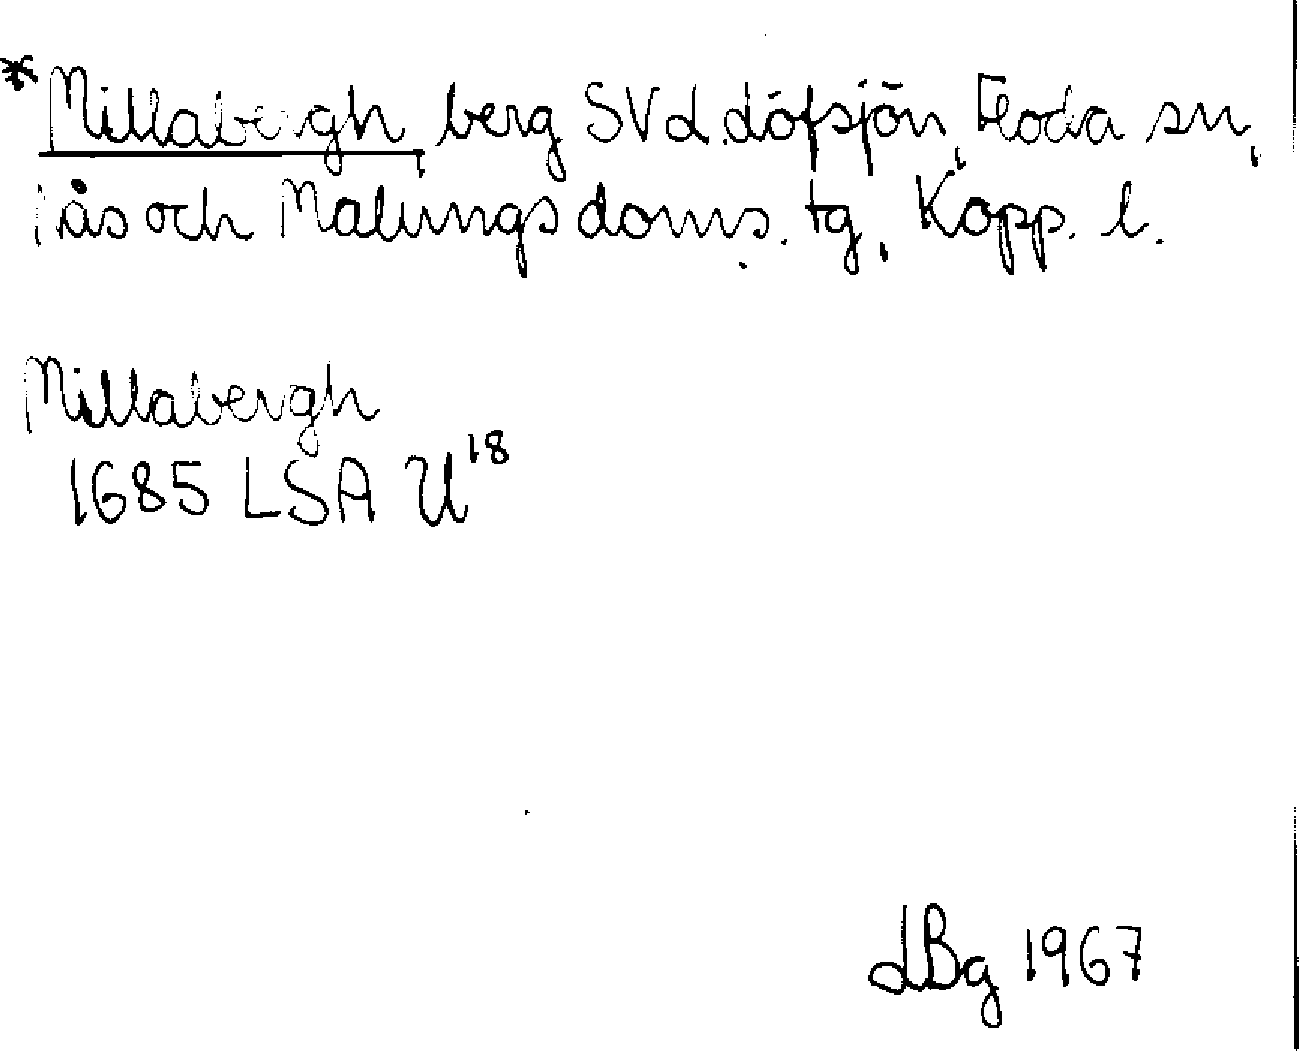 *Millabergh, berg SV L. Löfsjön, Floda sn,
Nås och Malungs doms. tg, Kopp. l.
Millabergh
1685 LSA U18
LBg 1967